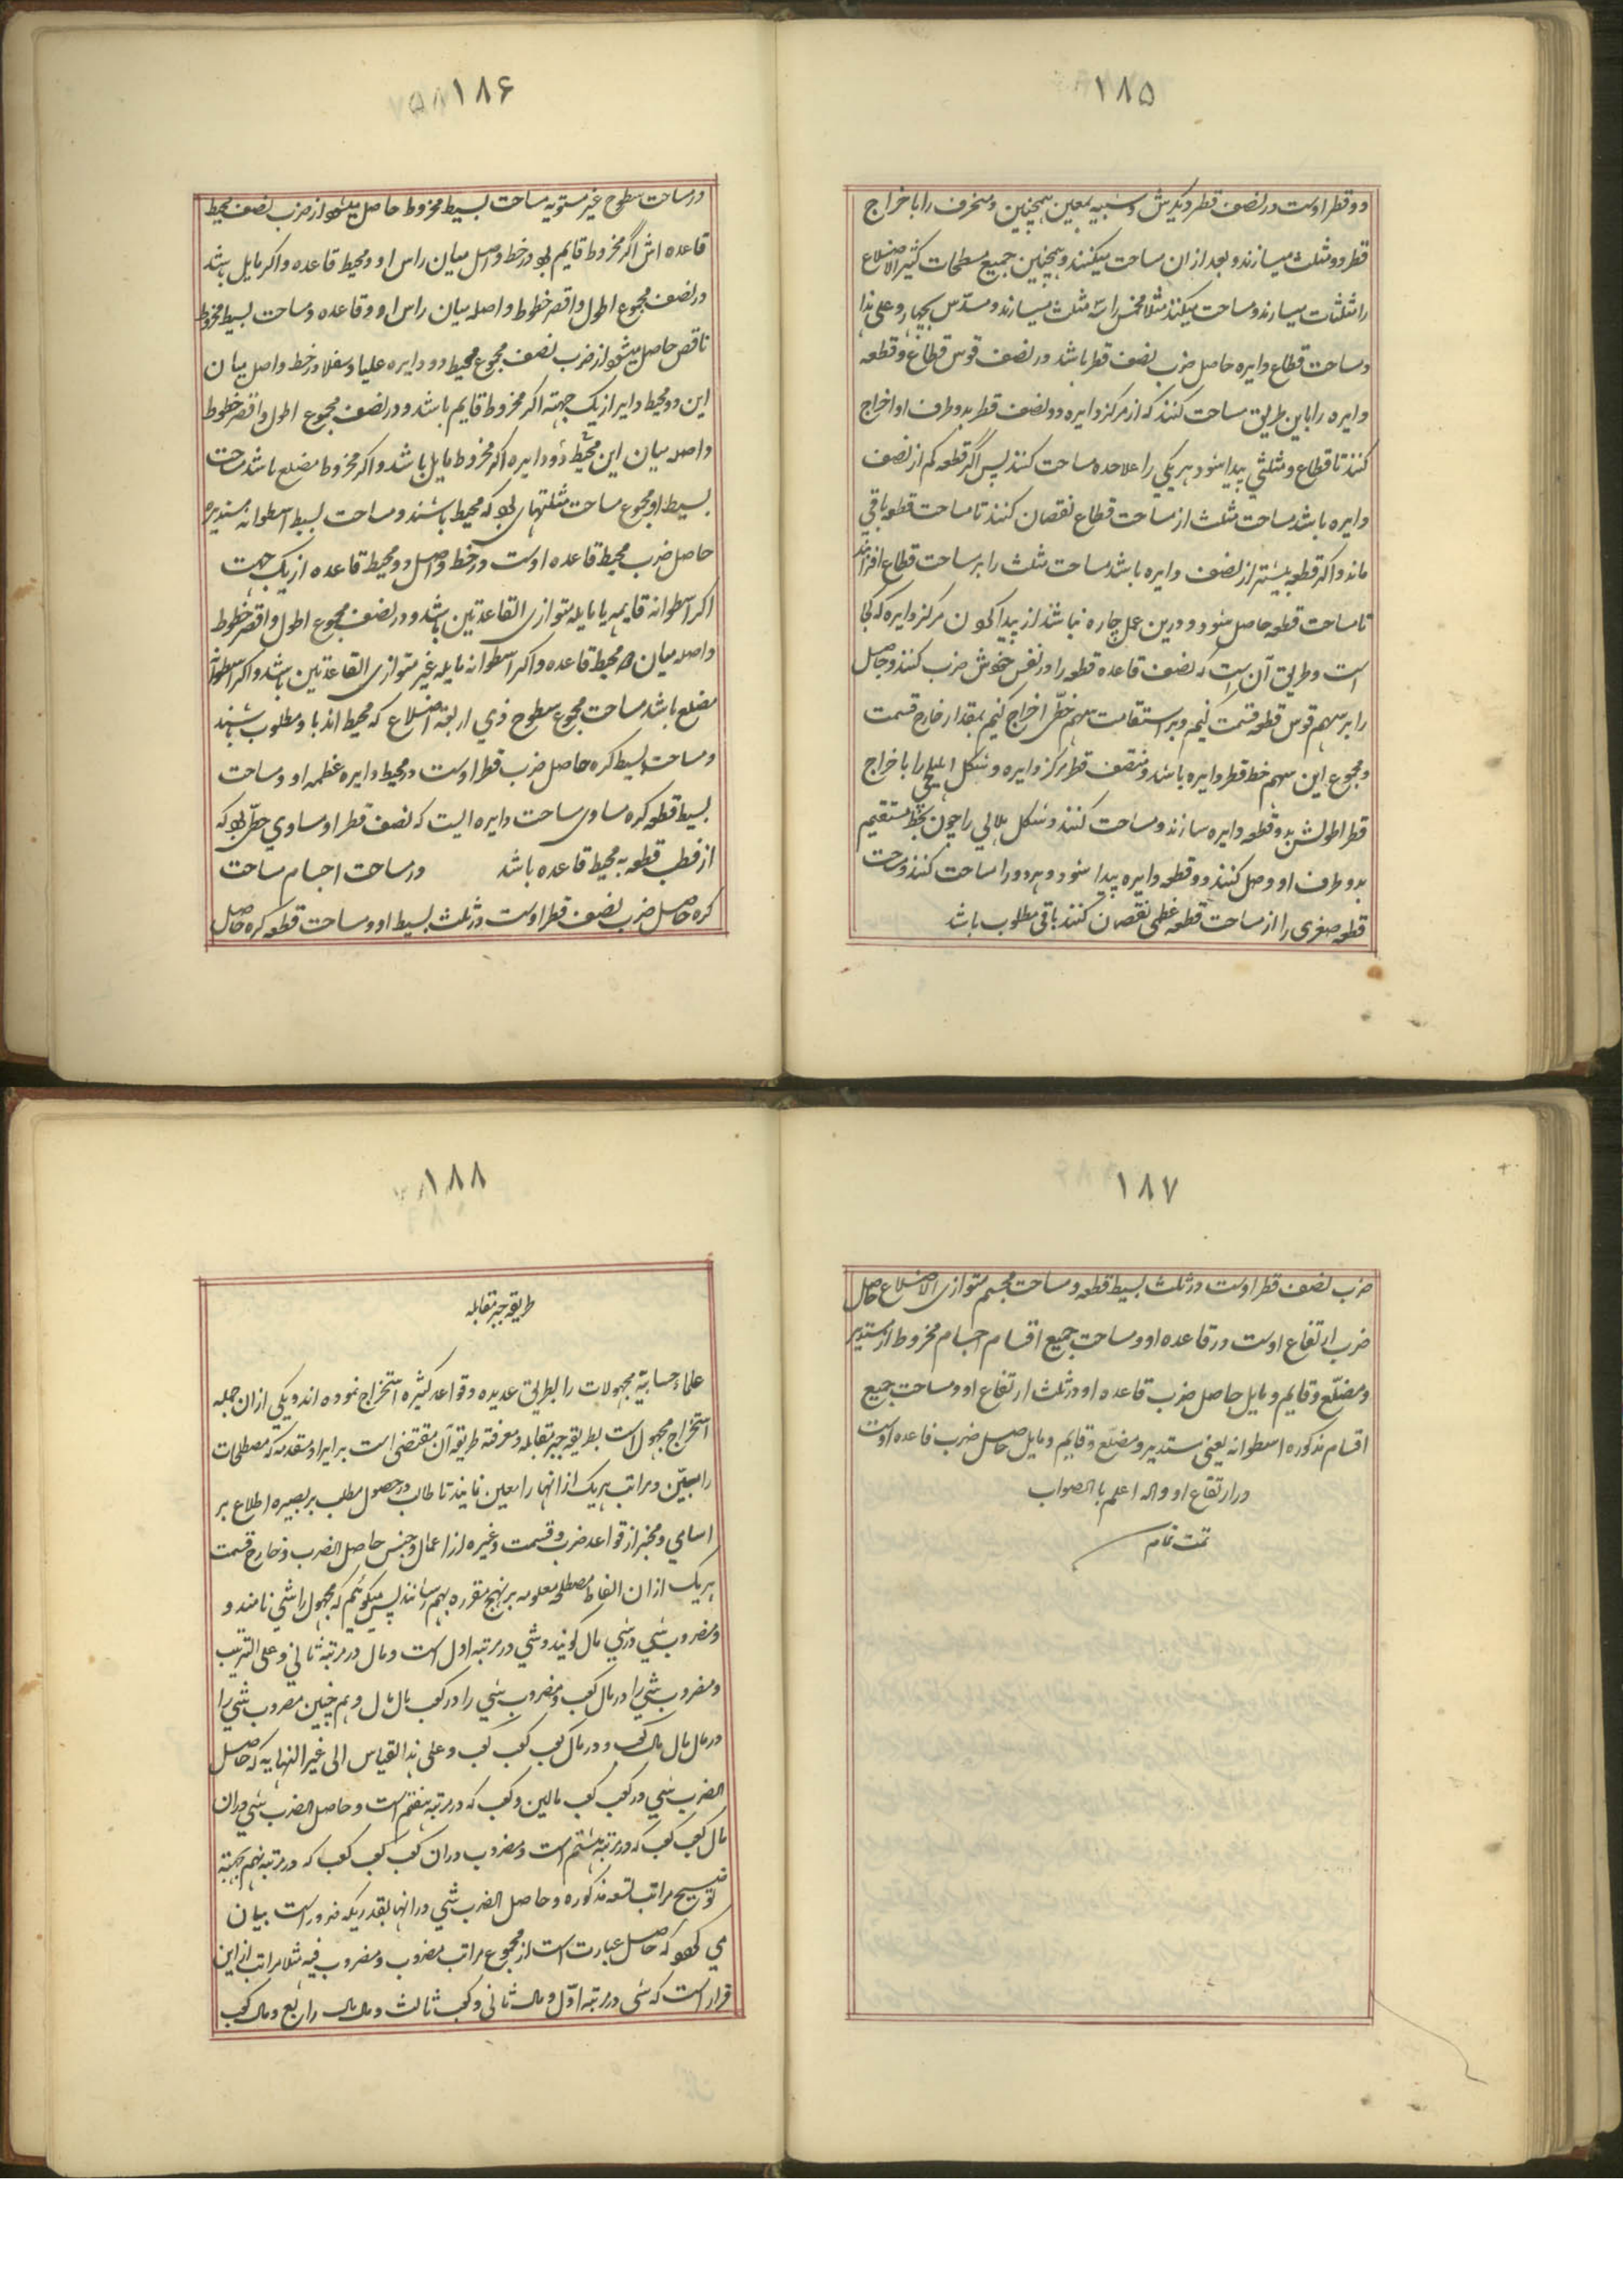 ۱۸۵
دو قطر اوست در نصف قطر دیگرش و شبیه بمعین همچنین و منحرف را باخراج
قطر دو مثلث میسازند و بعد از ان مساحت میکنند و همچنین جمیع مسطحات کثیر الاضلاع
را مثلثات میسازند و مساحت میکنند مثلا مخمس را سه مثلث میسازند و مسدس بچهار و علی هذا
و مساحت قطاع دایره حاصل ضرب نصف قطر باشد در نصف قوس قطاع و قطعه
دایره را باین طریق مساحت کنند که از مرکز دایره دو نصف قطر بدو طرف او اخراج
کنند تا قطاع و مثلثی پیدا شود هر یکی را علاحده مساحت کنند پس اگر قطعه کم از نصف
دایره باشد مساحت مثلث از مساحت قطاع نقصان کنند تا مساحت قطعه باقی
ماند و اکر قطعه بیشتر از نصف دایره باشد مساحت مثلث را بر مساحت قطاع افزایند
تا مساحت قطعه حاصل شود و درین عمل چاره نباشد از پیدا کردن مرکز دایره که کجا
است و طریق آن است که نصف قاعده قطعه را در نفس خویش ضرب کنند و حاصل
را بر سهم قوس قطعه قسمت کنیم و بر استقامت سهم خطی اخراج کنیم بمقدار خارج قسمت
و مجموع این سهم خط قطر دایره باشد و منتصف قطر مرکز دایره و شکل اهلیلجی را باخراج
قطر اطولش بدو قطعه دایره سازند و مساحت کنند و شکل هلالی را چون بخط مستقیم
بدو طرف او وصل کنند دو قطعه دایره پیدا شود و هر دو را مساحت کنند و مساحت
قطعه صغری را از مساحت قطعه عظمی نقصان کنند باقی مطلوب باشد
۱۸۶
در مساحت سطوح غیر مستویه مساحت بسیط مخروط حاصل میشود از ضرب نصف محیط
قاعده اش اگر مخروط قایم بود در خط واصل میان راس او و محیط قاعده و اکر مایل باشد
در نصف مجموع اطول و اقصر خطوط واصله میان راس او و قاعده و مساحت بسیط مخروط
ناقص حاصل میشود از ضرب نصف مجموع محیط دو دایره علیا و سفلا در خط واصل میان
این دو محیط دایر از یک جهته اکر مخروط قایم باشد و در نصف مجموع اطول و اقصر خطوط
واصله میان این محیط دو دایره اکر مخروط مایل باشد و اکر مخروط مضلع باشد مساحت
بسیط او مجموع مساحت مثلثهای بود که محیط باشند و مساحت بسیط اسطوانه مستدیره
حاصل ضرب محیط قاعده اوست در خط واصل دو محیط قاعده از یک جهت
اکر اسطوانه قایمه یا مایله متوازی القاعدتین باشد و در نصف مجموع اطول و اقصر خطوط
واصله میان محیط قاعده و اکر اسطوانه مایله غیر متوازی القاعدتین باشد و اکر اسطوانه
مضلع باشد مساحت مجموع سطوح ذی اربعة اضلاع که محیط اند باو مطلوب باشند
و مساحت بسیط کره حاصل ضرب قطر اوست در محیط دایره عظمه او و مساحت
بسیط قطعه کره مساوی مساحت دایره ایست که نصف قطر او مساوی خطی بود که
از قطب قطعه به محیط قاعده باشد در مساحت اجسام مساحت
کره حاصل ضرب نصف قطر اوست در ثلث بسیط او و مساحت قطعه کره حاصل
۱۸۷
ضرب نصف قطر اوست در ثلث بسیط قطعه و مساحت مجسم متوازی الاضلاع حاصل
ضرب ارتفاع اوست در قاعده او و مساحت جمیع اقسام اجسام مخروط از مستدیر
و مضلع و قایم و مایل حاصل ضرب قاعده او در ثلث ارتفاع او و مساحت جمیع
اقسام مذکوره اسطوانه یعنی مستدیر و مضلع و قایم و مایل حاصل ضرب قاعده اوست
در ارتفاع او والله اعلم بالصواب
تمت تمام
۱۸۸
طریقه جبر مقابله
علماء حسابیه مجهولات را بطرایق عدیده و قواعد کثیره استخراج نموده اند و یکی ازان جمله
استخراج مجهول است بطریقه جبر مقابله و معرفة طریقه آن مقتضی است بر ایراد مقدمه که مصطلحات
را مبین و مراتب هر یک از انها را معین نمایند تا طالب در حصول مطلب بر بصیره اطلاع بر
اسامی و مخبر از قواعد ضرب و قسمت و غیره از اعمال و جنس حاصل الضرب و خارج قسمت
هر یک ازان الفاظ مصطلحه معلومه بر نهج مقرره بهم رسانند پس میگوئیم که مجهول را شی نامند و
و مضروب شی در شی مال کویند و شی در مرتبه اول است و مال در مرتبه ثانی و علی الترتیب
و مضروب شی را در مال کعب و مضروب شی را در کعب مال مال و هم چنین مضروب شی را
در مال مال مال کعب و در مال کعب کعب کعب و علی هذا القیاس الی غیر النهایه که حاصل
الضرب شی در کعب کعب مالین و کعب که در مرتبه هفتم است و حاصل الضرب شی دران
مال کعب کعب که در مرتبه هشتم است و مضروب دران کعب کعب کعب که در مرتبه نهم بجهة
توضیح مراتب تسعه مذکوره و حاصل الضرب شی در انها بقدریکه ضرور است بیان
می که حاصل عبارت است از مجموع مراتب مضروب و مضروب فیه مثلا مراتب از این
قرار است که شی در مرتبه اول و مال ثانی و کعب ثالث و مال مال رابع و مال کعب